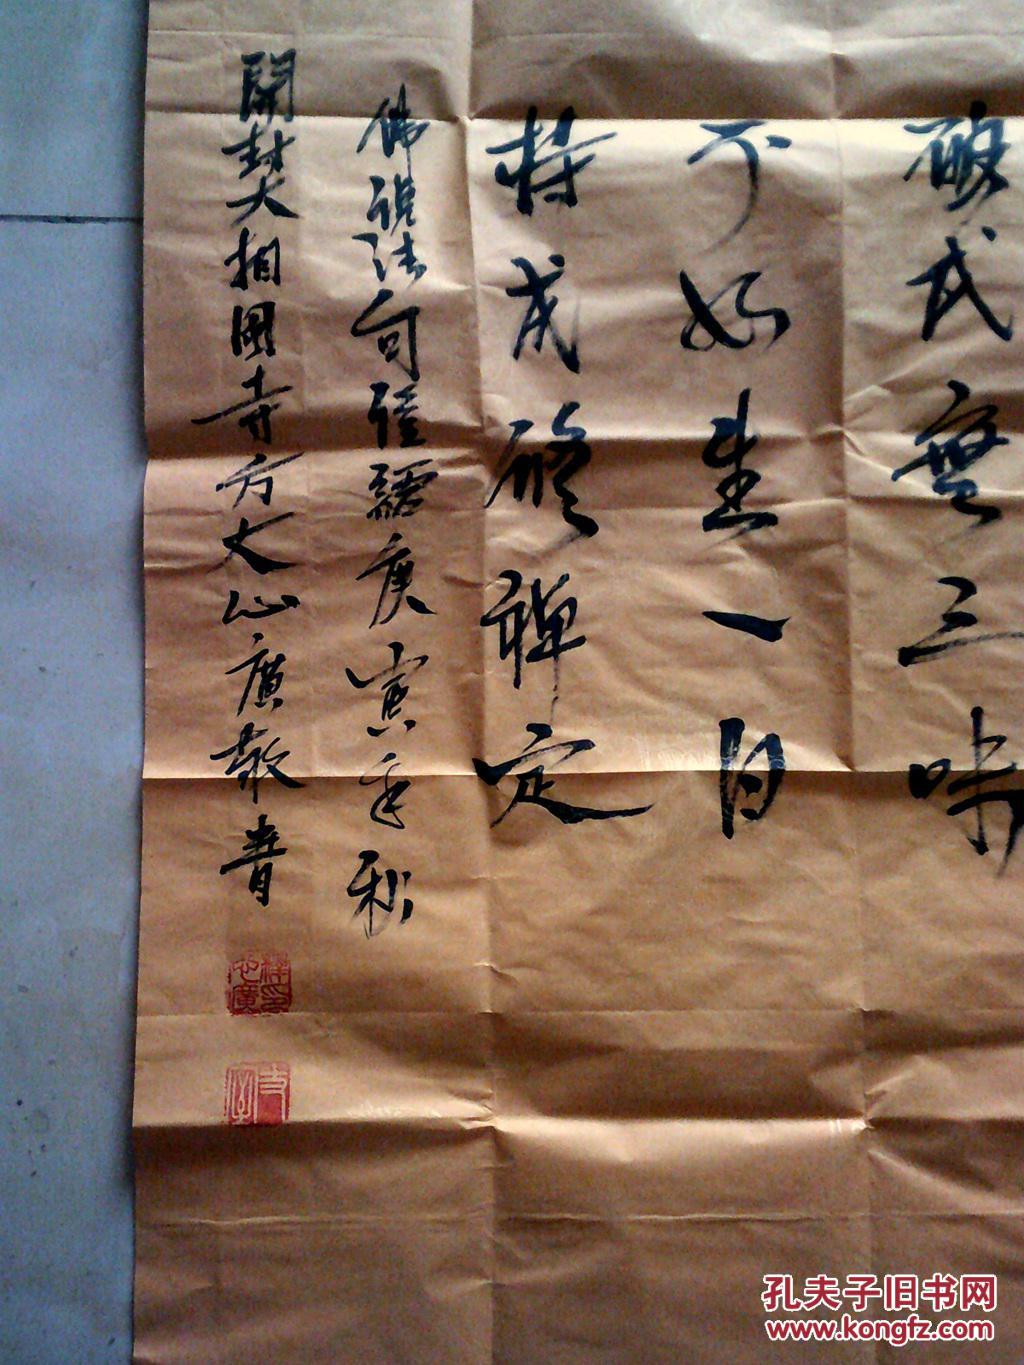 破戒無三昧
不如生一日
持戒修禪定
佛說法句經語庚寅年秋
開封大相國寺方丈心廣敬書
釋心廣印
孔夫子旧书网
www.kongfz.com